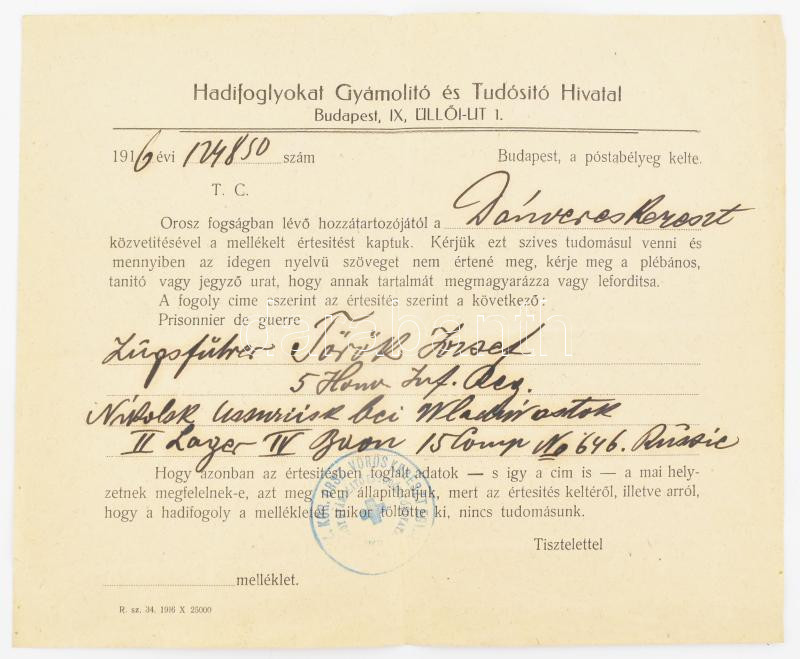 Hadifoglyokat Gyámolító és Tudósító Hivatal
Budapest, IX, ÜLLŐI-UT 1.
1916 évi 124850 szám Budapest, a póstabélyeg kelte.
T. C.
Orosz fogságban lévő hozzátartozójától a Dánvereskereszt
közvetitésével a mellékelt értesitést kaptuk. Kérjük ezt szives tudomásul venni és
mennyiben az idegen nyelvü szöveget nem értené meg, kérje meg a plébános,
tanitó vagy jegyző urat, hogy annak tartalmát megmagyarázza vagy leforditsa.
A fogoly cime iszerint az értesités szerint a következő:
Prisonnier de guerre
Zugsführer Török József
5 Honv Inf. Reg.
Nikolsk Ussuriisk bei Wladiwostok
II Lager IV Baon 15 Comp No 646. Russie
Hogy azonban az értesitésben foglalt adatok — s igy a cim is — a mai hely-
zetnek megfelelnek-e, azt meg nem állapithatjuk, mert az értesités keltéről, illetve arról,
hogy a hadifogoly a mellékletet mikor töltötte ki, nincs tudomásunk.
Tisztelettel
melléklet.
R. sz. 34. 1916 X 25000